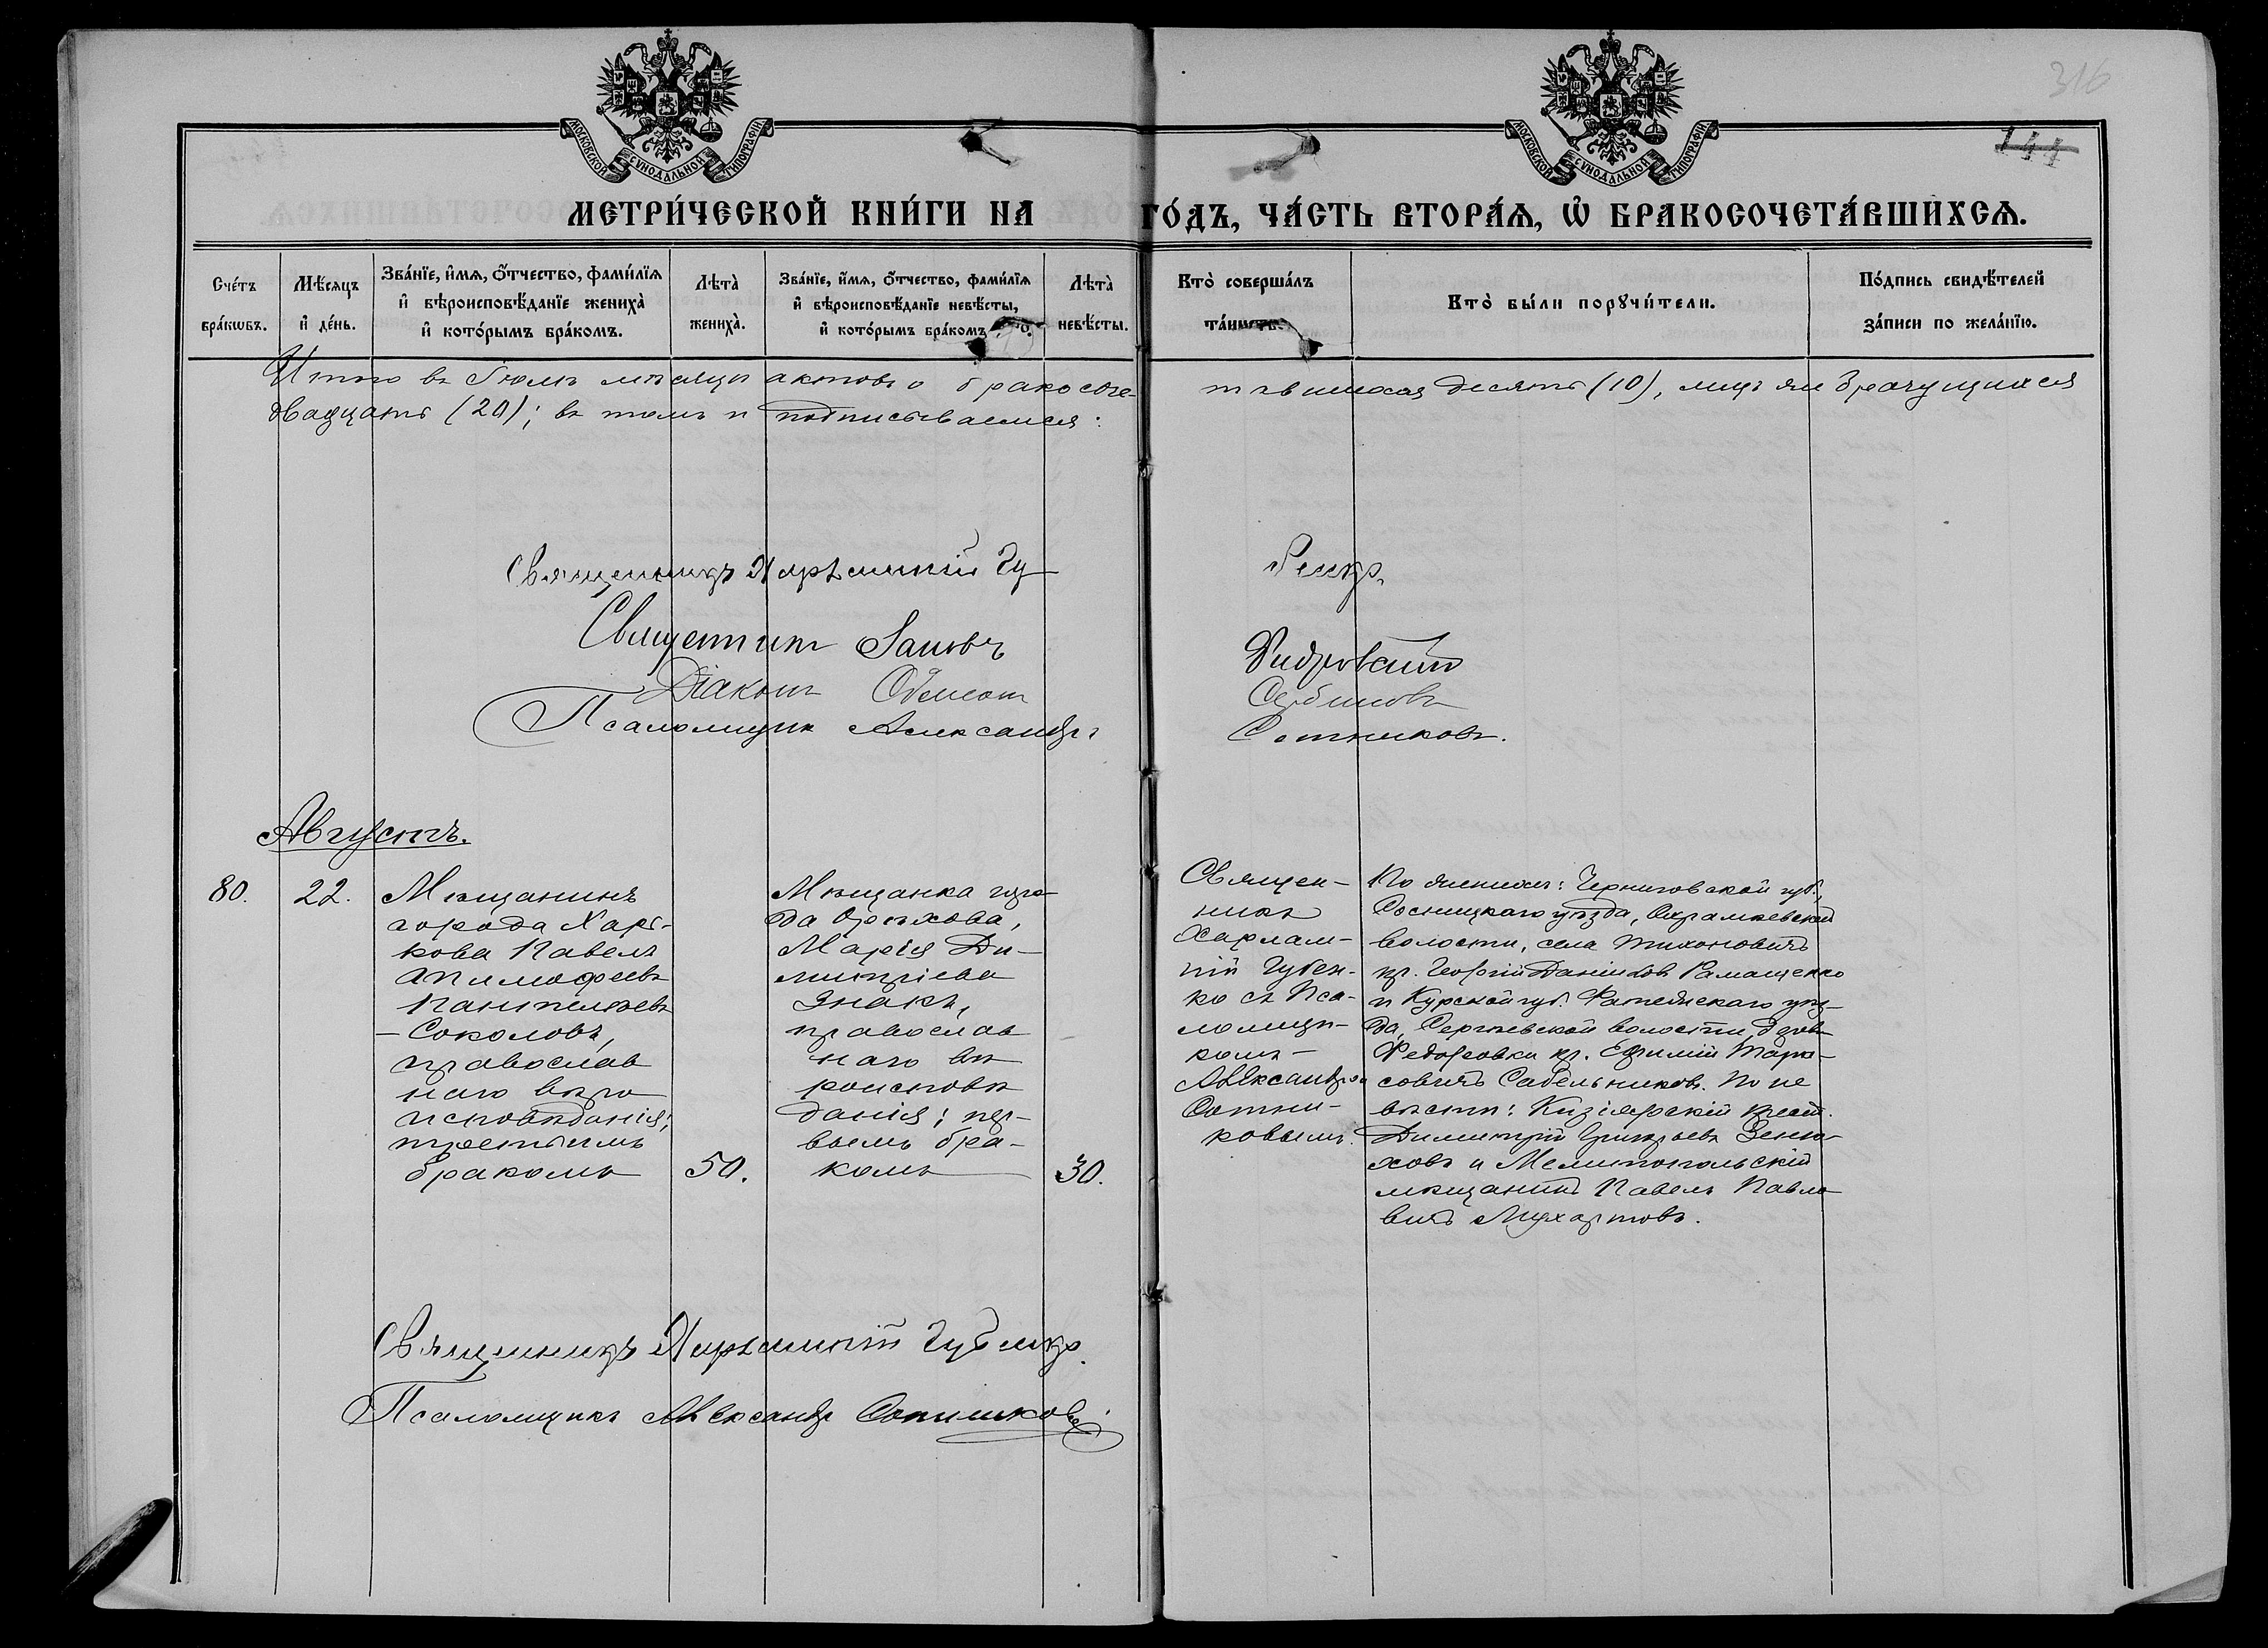 316
144
МОСКОВСКОЙ СѴНОДАЛЬНОЙ ТИПОГРАФІИ
МОСКОВСКОЙ СѴНОДАЛЬНОЙ ТИПОГРАФІИ
МЕТРИ́ЧЕСКОЙ КНИ́ГИ НА ГО́ДЪ, ЧА́СТЬ ВТОРА́Я, Ѡ҆ БРАКОСОЧЕТА́ВШИХСЯ.
Сче́тъ
бра́кѡвъ.
Мѣ́сяцъ
и҆ де́нь.
Зва́нїе, и҆́мя, ѻ҆́тчество, фами́лїя
и҆ вѣроисповѣ́данїе жениха̀
и҆ кото́рымъ бра́комъ.
Лѣта̀
жениха̀.
Зва́нїе, и҆́мя, ѻ҆́тчество, фами́лїя
и҆ вѣроисповѣ́данїе невѣ́сты,
и҆ кото́рымъ бра́комъ.
Лѣта̀
невѣ́сты.
Кто̀ соверша́лъ
та́инство.
Кто̀ бы́ли порꙋчи́тели.
По́дпись свидѣ́телей
за́писи по жела́нїю.
Итого въ Іюлѣ мѣсяцѣ актовъ о бракосоче- тавшихся десять (10), лицъ же брачущихся
двадцать (20); въ томъ и подписываемся:
Священникъ Харлампій Гу- бенко.
Священникъ
Діаконъ Сербиновъ
Псаломщикъ Александръ Сотниковъ.
Августъ.
80.
22.
Мѣщанинъ
города Харь-
кова Павелъ
Тимофеевъ
Пантелѣевъ
- Соколовъ,
православ
наго вѣро
исповѣданія;
третьимъ
бракомъ
50.
Мѣщанка горо-
да Орѣхова,
Марія Ди-
митріева
Знакъ,
православ
наго вѣ
роисповѣ
данія; пер-
вымъ бра-
комъ
30.
Священ-
никъ
Харлам-
пій Губен-
ко съ Пса-
ломщи-
комъ
Александро
Сотни-
ковымъ.
По женихѣ: Черниговской губ.,
Сосницкаго уѣзда, Охрамѣевской
волости, села Тихоновичъ
кр. Георгій Даніиловъ Ромащенко
и Курской губ. Фатежскаго уѣз-
да, Сергѣевской волости, дерев
Федоровки кр. Ефимій Тара-
совичъ Сабельниковъ. По не
вѣсти: Кизіярскій крест.
Димитрій Григорьевъ
ховъ и Мелитопольскій
мѣщанинъ Павелъ Павло
вичъ Мухортовъ.
Священникъ Харлампій Губенко.
Псаломщикъ Александр Сотниковъ